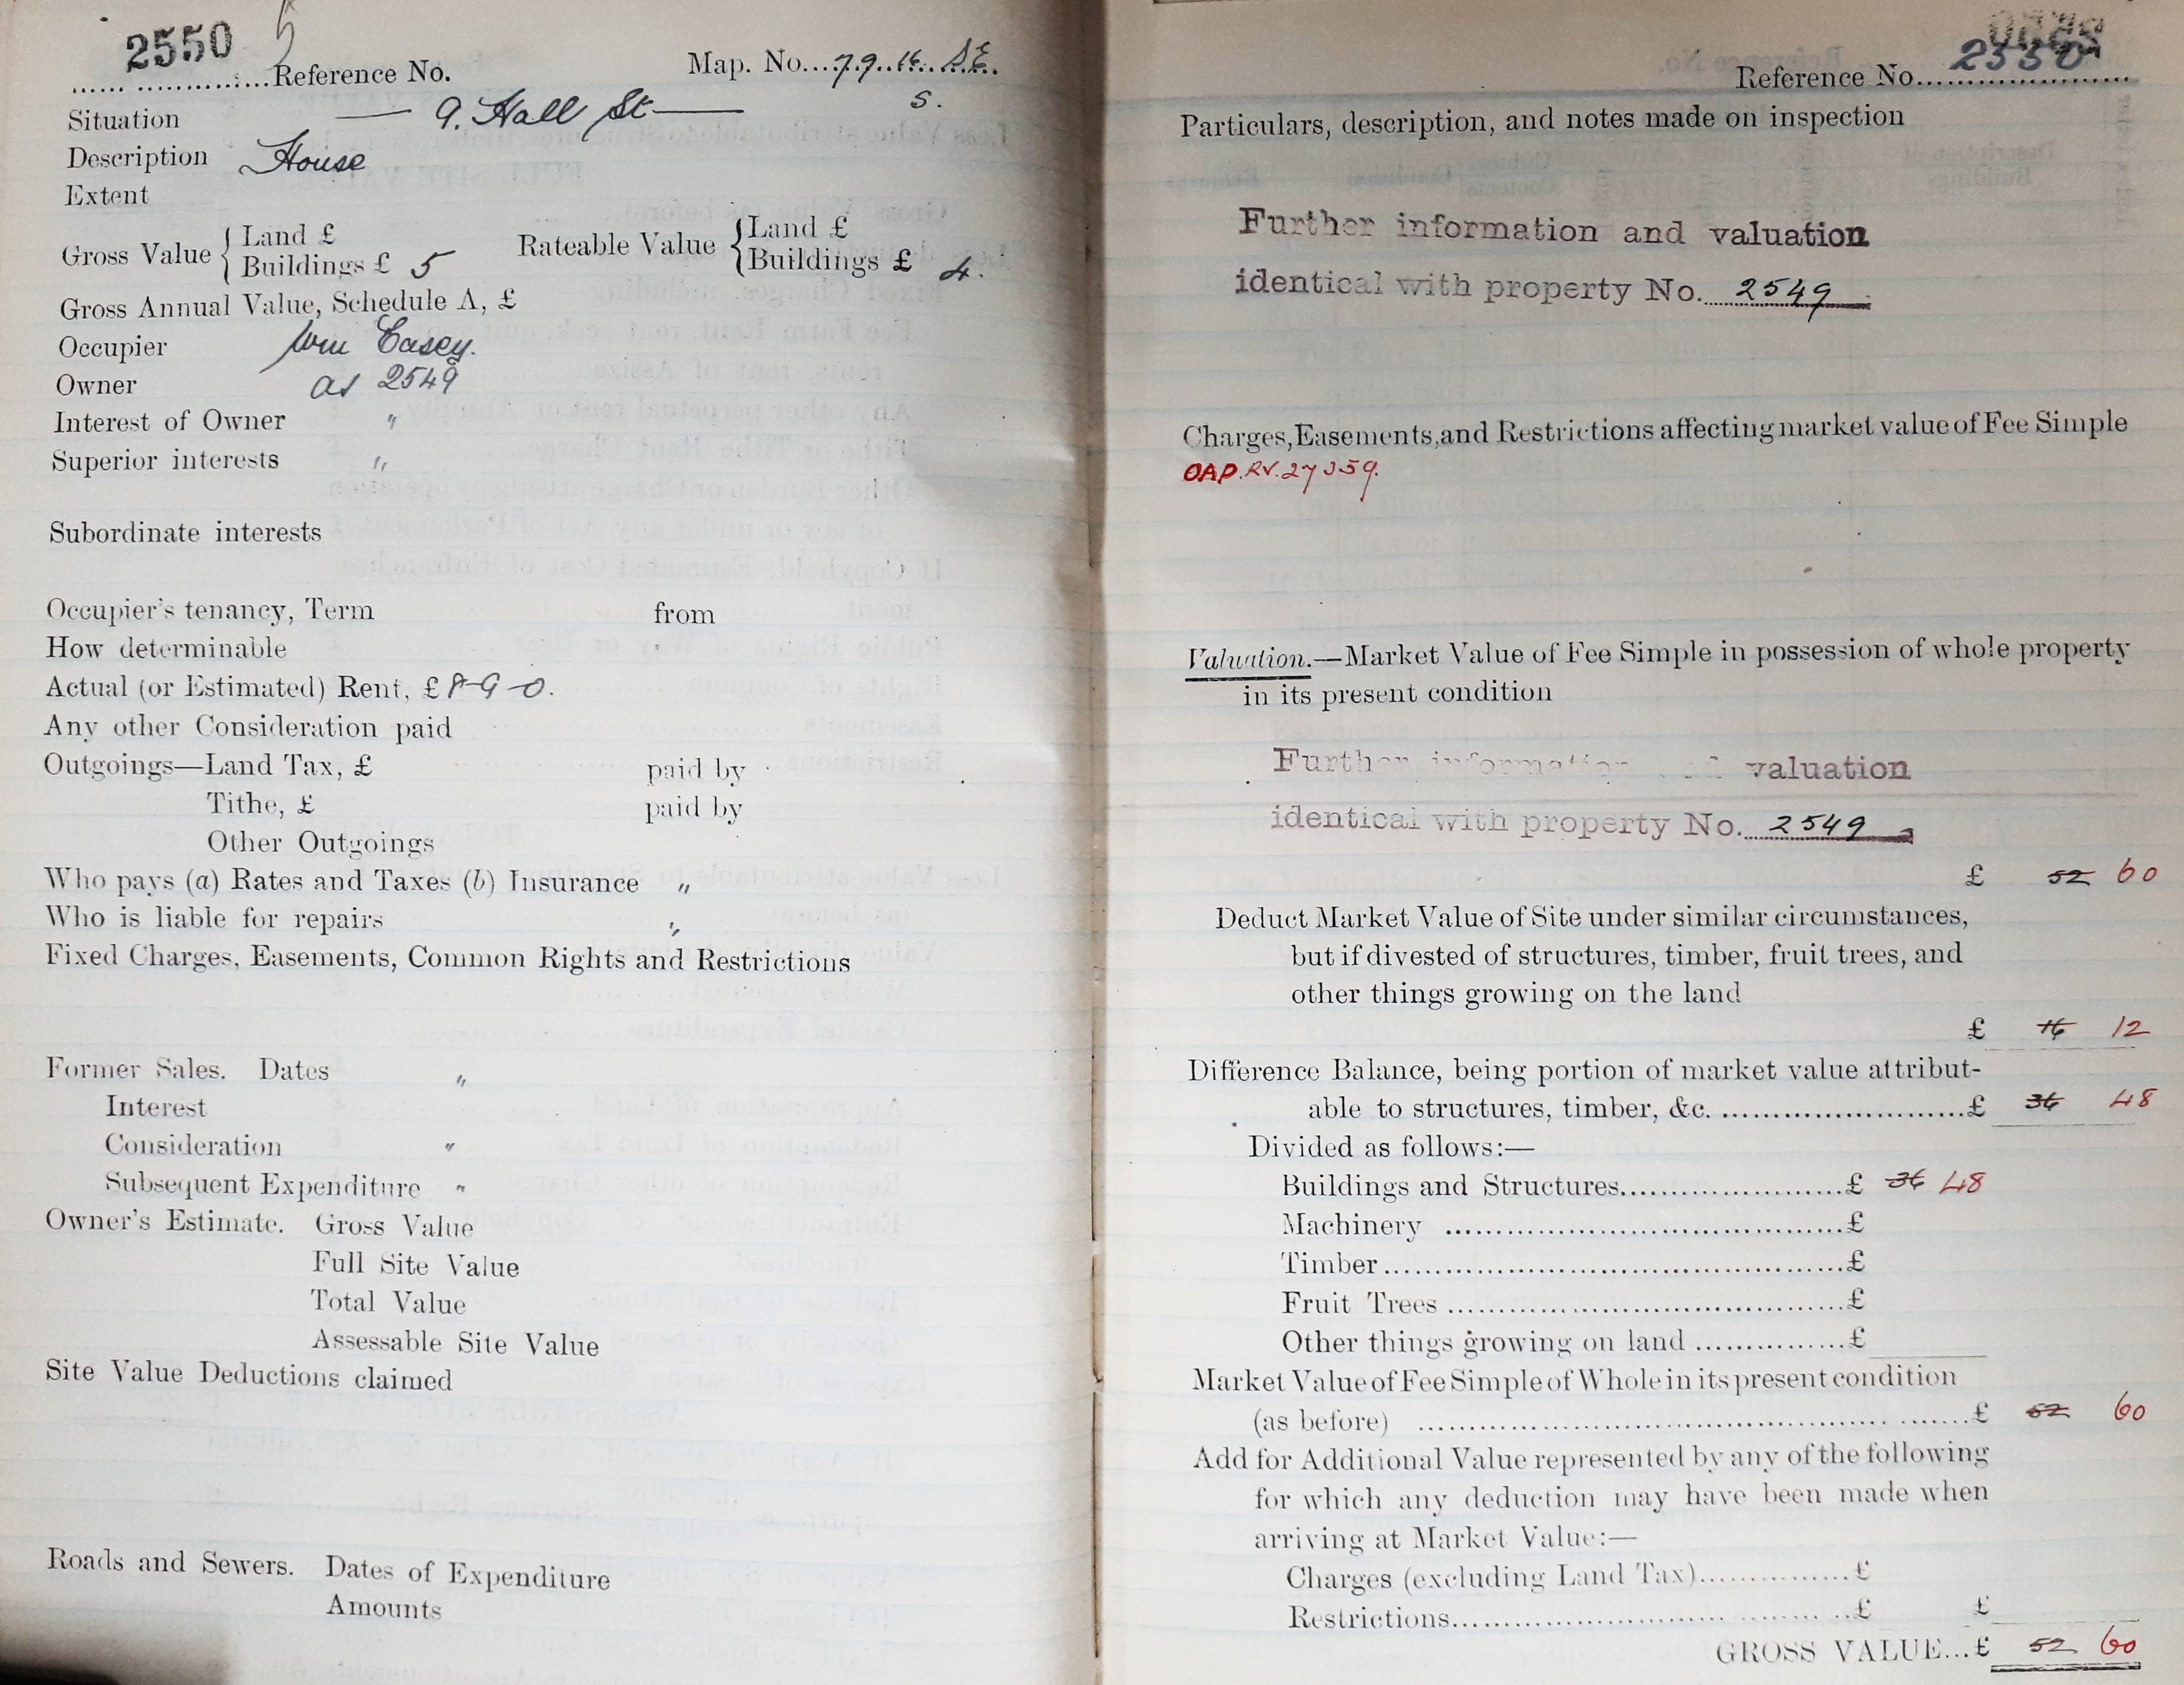 2550
Reference No.
Map. No. 79.16. S.E.
S.
Situation — 9. Hall St —
Description House
Extent
Gross Value { Land £
Buildings £ 5
Rateable Value { Land £
Buildings £ 4.
Gross Annual Value, Schedule A, £
Occupier Wm Casey.
Owner as 2549
Interest of Owner "
Superior interests "
Subordinate interests
Occupier's tenancy, Term from
How determinable
Actual (or Estimated) Rent, £ 8-9-0.
Any other Consideration paid
Outgoings—Land Tax, £ paid by
Tithe, £ paid by
Other Outgoings
Who pays (a) Rates and Taxes (b) Insurance "
Who is liable for repairs "
Fixed Charges, Easements, Common Rights and Restrictions
Former Sales. Dates "
Interest
Consideration "
Subsequent Expenditure "
Owner's Estimate. Gross Value
Full Site Value
Total Value
Assessable Site Value
Site Value Deductions claimed
Roads and Sewers. Dates of Expenditure
Amounts
Reference No. 2550
Particulars, description, and notes made on inspection
Further information and valuation
identical with property No. 2549
Charges, Easements, and Restrictions affecting market value of Fee Simple
OAP. RV. 27359.
Valuation.—Market Value of Fee Simple in possession of whole property
in its present condition
Further information and valuation
identical with property No. 2549
£ 52 60
Deduct Market Value of Site under similar circumstances,
but if divested of structures, timber, fruit trees, and
other things growing on the land
£ 16 12
Difference Balance, being portion of market value attribut-
able to structures, timber, &c. £ 36 48
Divided as follows:—
Buildings and Structures £ 36 48
Machinery £
Timber £
Fruit Trees £
Other things growing on land £
Market Value of Fee Simple of Whole in its present condition
(as before) £ 52 60
Add for Additional Value represented by any of the following
for which any deduction may have been made when
arriving at Market Value:—
Charges (excluding Land Tax) £
Restrictions £ £
GROSS VALUE...£ 52 60